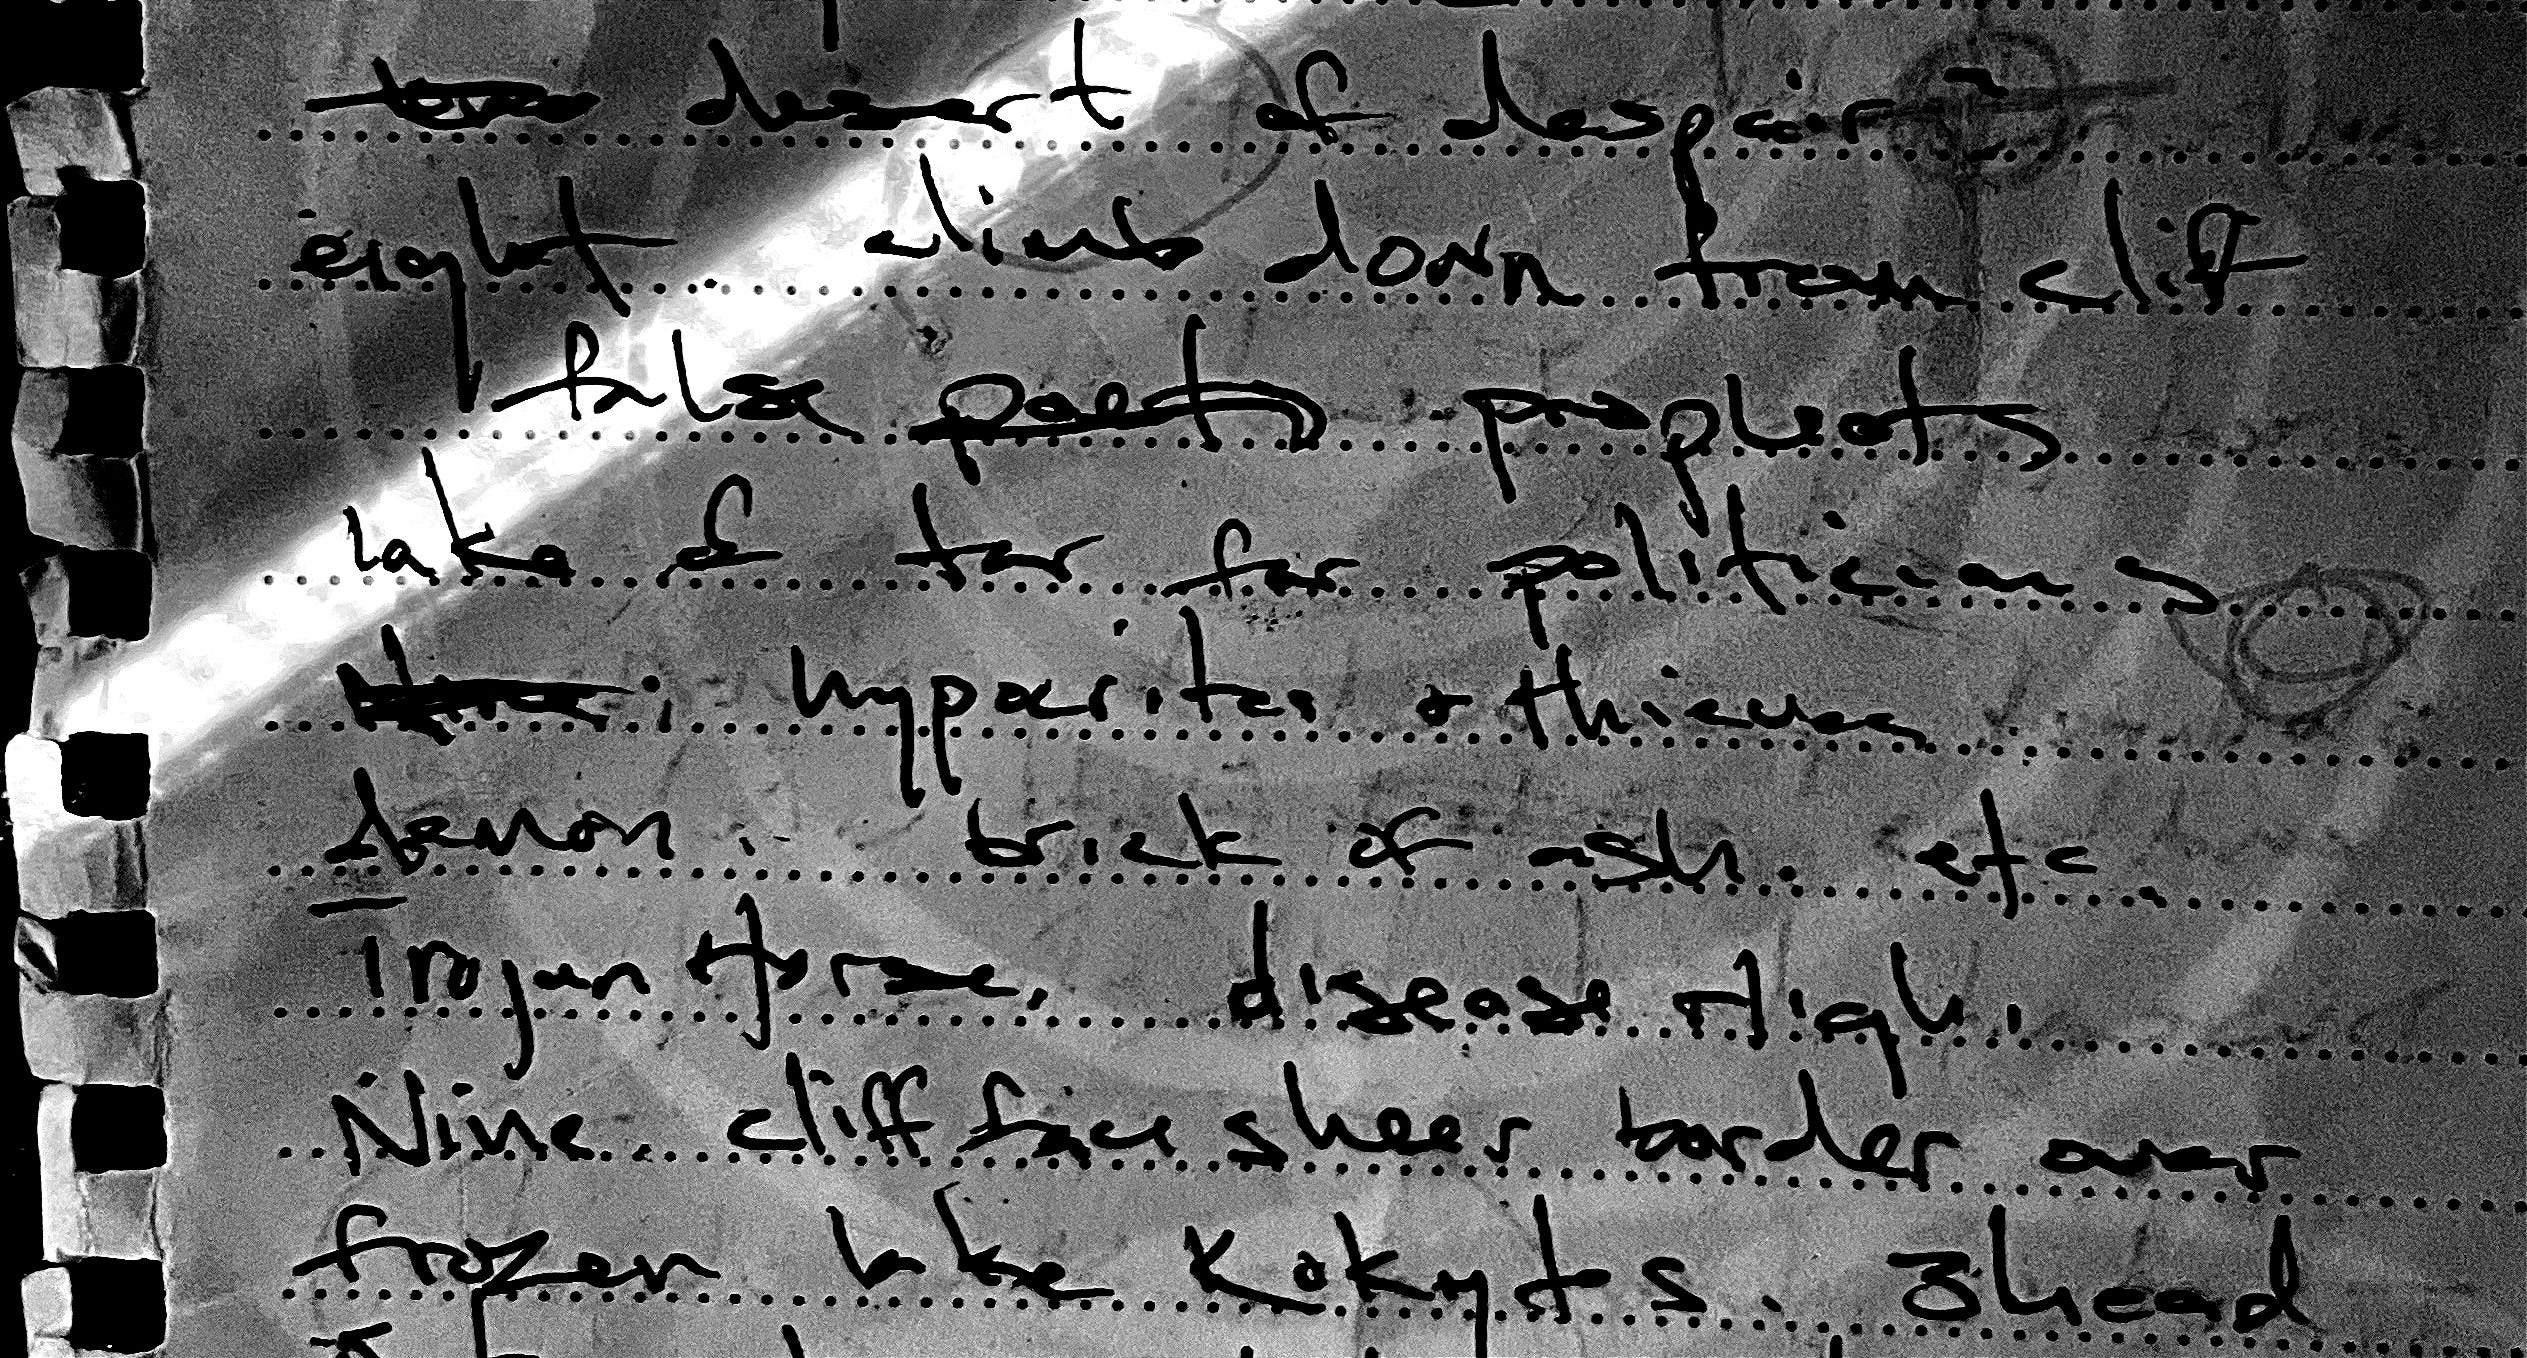 desert of despair
eight climb down from cliff
false poets prophets
lake of tar for politicians
: hypocrites & thieves
demon. brick of ash. etc.
Trojan Horse. disease High.
Nine. cliff face sheer border over
frozen lake Kokytos. 3head